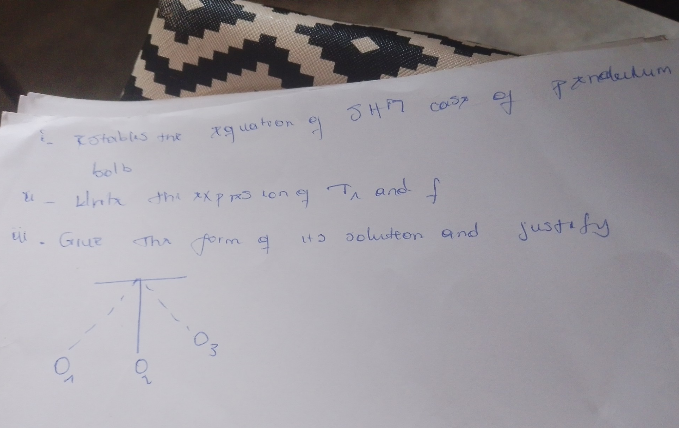 i- Establishes the equation of SHM case of pendulum
bolb
ii - Write the expression of T, and f
iii. Give The form of its solution and justify
O1
O2
O3